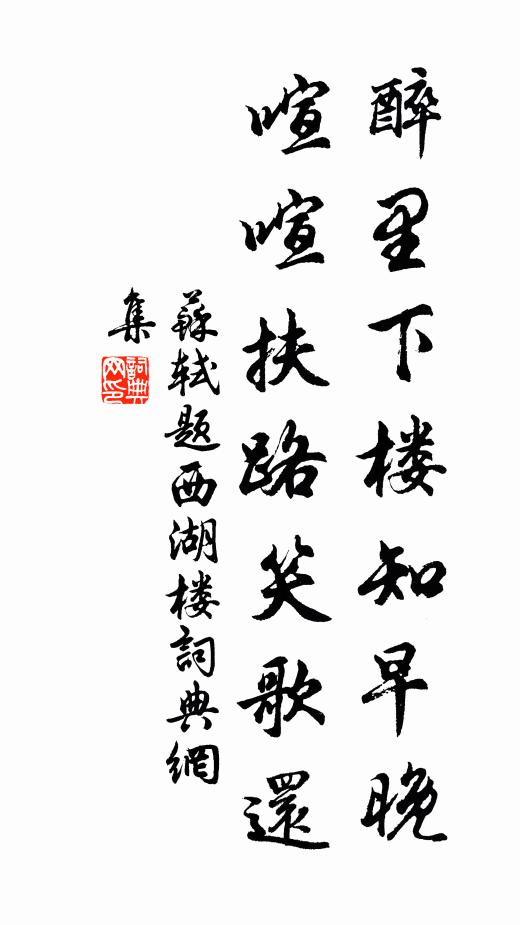 醉里下楼知早晚
喧喧扶路笑歌還
蘇轼题西湖楼詞典網
集
詞典网印